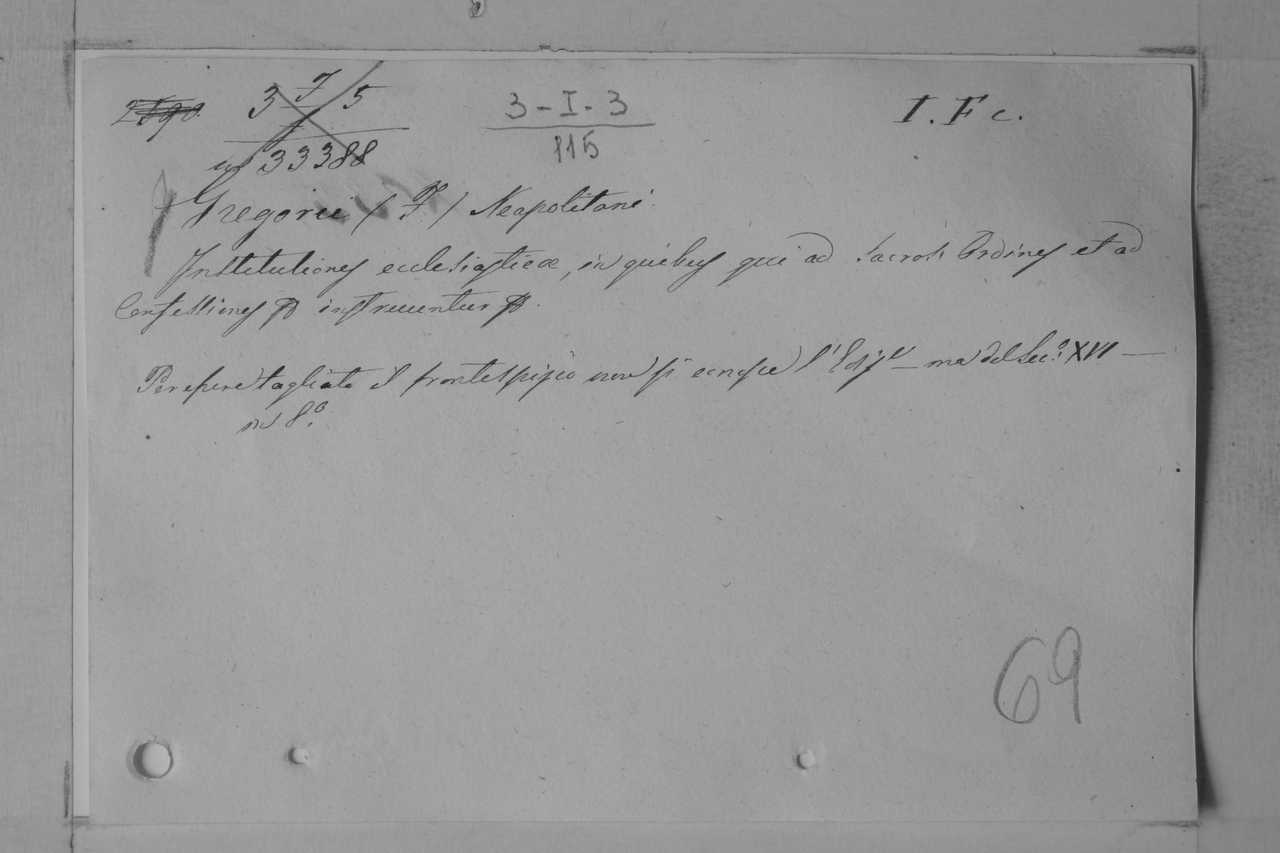 3 7 5
33388
3-I-3
115
I. F c.
Gregorii (F) Neapolitani.
Institutiones ecclesiasticæ, in quibus qui ad Sacros Ordines et ad
Confessiones instruuntur
Per essere tagliato il frontespizio non si conosce l'Ediz.e — ma del Sec.o XVI —
in 8.o
69